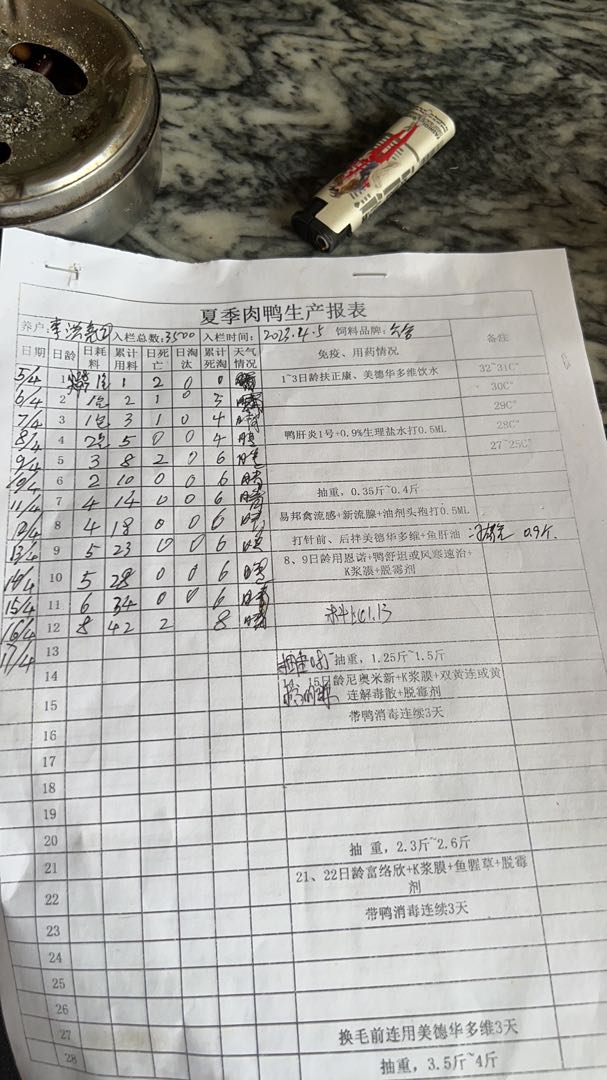 夏季肉鸭生产报表
养户: 入栏总数:3500 入栏时间: 2023.4.5 饲料品牌:
日期 日龄 日耗料 累计用料 日死亡 日淘汰 累计死淘 天气情况 免疫、用药情况 备注
5/4 1 1包 1 2 0 1~3日龄扶正康、美德华多维饮水 32~31C°
6/4 2 1包 2 1 0 3 30C°
7/4 3 1包 3 1 0 4 29C°
8/4 4 2包 5 0 0 4 晴 鸭肝炎1号+0.9%生理盐水打0.5ML 28C°
9/4 5 3 8 2 0 6 晴 27~25C°
10/4 6 2 10 0 0 6 晴 抽重，0.35斤~0.4斤
11/4 7 4 14 0 0 6 晴 易邦禽流感+新流腺+油剂头孢打0.5ML
12/4 8 4 18 0 0 6 晴 打针前、后拌美德华多维+鱼肝油 0.9斤
13/4 9 5 23 0 0 6 晴 8、9日龄用恩诺+鸭舒坦或风寒速治+K浆膜+脱霉剂
14/4 10 5 28 0 0 6 晴
15/4 11 6 34 0 0 6 晴
16/4 12 8 42 2 8 晴 料比1.13
17/4 13
14 抽重，1.25斤~1.5斤
15 15日龄尼奥米新+K浆膜+双黄连或黄连解毒散+脱霉剂
带鸭消毒连续3天
16
17
18
19
20 抽 重，2.3斤~2.6斤
21 21、22日龄富络欣+K浆膜+鱼腥草+脱霉剂
22 带鸭消毒连续3天
23
24
25
26
27 换毛前连用美德华多维3天
28 抽重，3.5斤~4斤